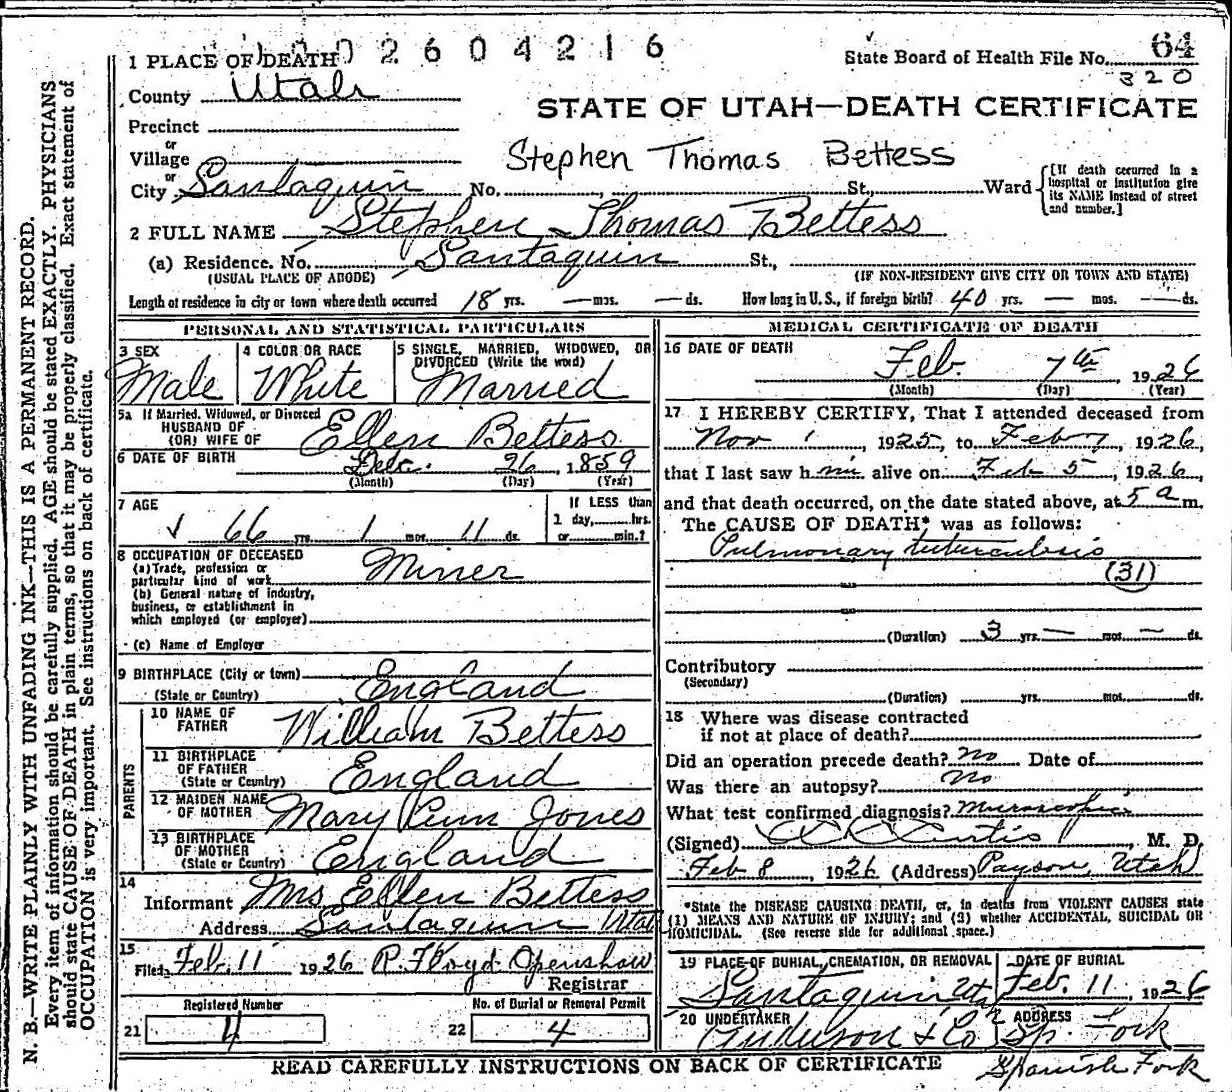 002604216
State Board of Health File No. 64
320
1 PLACE OF DEATH
County Utah
STATE OF UTAH—DEATH CERTIFICATE
Precinct
or
Village
Stephen Thomas Bettess
or
City Santaquin No. , St., Ward
[If death occurred in a hospital or institution give its NAME instead of street and number.]
2 FULL NAME Stephen Thomas Bettess
(a) Residence. No. Santaquin St.,
(USUAL PLACE OF ABODE) (IF NON-RESIDENT GIVE CITY OR TOWN AND STATE)
Length of residence in city or town where death occurred 18 yrs. — mos. — ds. How long in U. S., if foreign birth? 40 yrs. — mos. — ds.
PERSONAL AND STATISTICAL PARTICULARS
3 SEX
Male
4 COLOR OR RACE
White
5 SINGLE, MARRIED, WIDOWED, OR
DIVORCED (Write the word)
Married
5a If Married, Widowed, or Divorced
HUSBAND OF
(OR) WIFE OF Ellen Bettess
6 DATE OF BIRTH Dec. 26 1859
(Month) (Day) (Year)
7 AGE
66 yrs. 1 mos. 11 ds.
If LESS than
1 day, hrs.
or min.?
8 OCCUPATION OF DECEASED
(a) Trade, profession or
particular kind of work Miner
(b) General nature of industry,
business, or establishment in
which employed (or employer)
(c) Name of Employer
9 BIRTHPLACE (City or town)
(State or Country) England
PARENTS
10 NAME OF
FATHER William Bettess
11 BIRTHPLACE
OF FATHER
(State or Country) England
12 MAIDEN NAME
OF MOTHER Mary Ann Jones
13 BIRTHPLACE
OF MOTHER
(State or Country) England
14
Informant Mrs Ellen Bettess
Address Santaquin Utah
15
Filed Feb. 11 1926 R. Floyd Openshaw
Registrar
Registered Number
21 4
No. of Burial or Removal Permit
22 4
MEDICAL CERTIFICATE OF DEATH
16 DATE OF DEATH
Feb. 7th, 1926
(Month) (Day) (Year)
17 I HEREBY CERTIFY, That I attended deceased from
Nov 1, 1925, to Feb 7, 1926,
that I last saw him alive on Feb 5, 1926,
and that death occurred, on the date stated above, at 5 a m.
The CAUSE OF DEATH* was as follows:
Pulmonary tuberculosis
(31)
(Duration) 3 yrs. — mos. — ds.
Contributory
(Secondary)
(Duration) yrs. mos. ds.
18 Where was disease contracted
if not at place of death?
Did an operation precede death? no Date of
Was there an autopsy? no
What test confirmed diagnosis? Microscopic
(Signed) Curtis, M. D.
Feb 8, 1926 (Address) Payson, Utah
*State the DISEASE CAUSING DEATH, or, in deaths from VIOLENT CAUSES state
(1) MEANS AND NATURE OF INJURY; and (2) whether ACCIDENTAL, SUICIDAL OR
HOMICIDAL. (See reverse side for additional space.)
19 PLACE OF BURIAL, CREMATION, OR REMOVAL
Santaquin Utah
DATE OF BURIAL
Feb. 11, 1926
20 UNDERTAKER
Anderson & Co
ADDRESS
Sp. Fork
Spanish Fork
READ CAREFULLY INSTRUCTIONS ON BACK OF CERTIFICATE
N. B.—WRITE PLAINLY WITH UNFADING INK—THIS IS A PERMANENT RECORD.
Every item of information should be carefully supplied. AGE should be stated EXACTLY. PHYSICIANS
should state CAUSE OF DEATH in plain terms, so that it may be properly classified. Exact statement of
OCCUPATION is very important. See instructions on back of certificate.